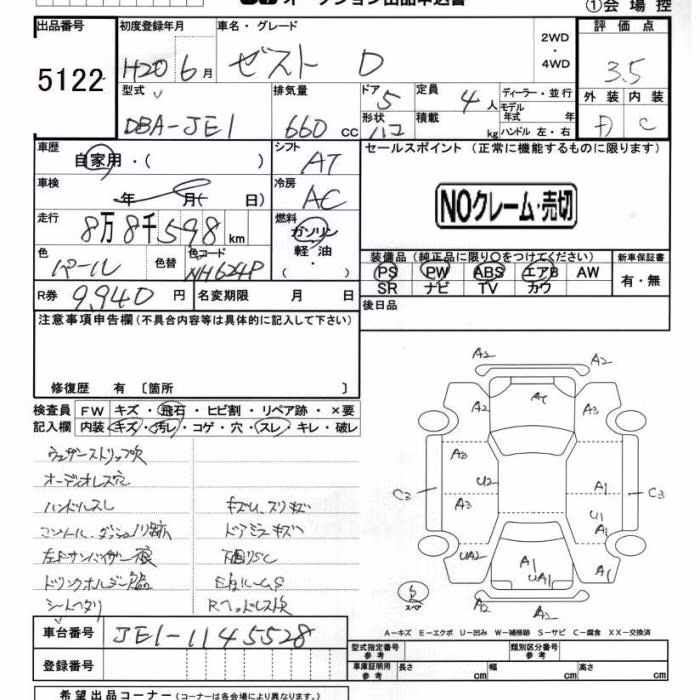 オークション出品申込書
①会場控
出品番号 初度登録年月 車名・グレード 2WD・4WD 評価点
5122 H20 6月 ゼスト D 3.5
型式 排気量 ドア 5 定員 4人 ディーラー・並行 外装 内装
DBA-JE1 660 cc 形状 ハコ 積載 kg モデル年式 年 C
ハンドル 左・右
車歴 シフト セールスポイント (正常に機能するものに限ります)
自家用・( ) AT
車検 年 月( 日) 冷房 AC NOクレーム・売切
走行 8万8千598km 燃料 ガソリン 軽油・( )
色 パール 色替 色コード NH624P
装備品(純正品に限り○をつけてください) 新車保証書
PS PW ABS エアB AW 有・無
SR ナビ TV カワ
R券 9,940円 名変期限 月 日
後日品
注意事項申告欄(不具合内容等は具体的に記入して下さい)
修復歴 有〔箇所 〕
検査員 FW キズ・飛石・ヒビ割・リペア跡・×要
記入欄 内装 キズ・汚レ・コゲ・穴・スレ・キレ・破レ
ウェザーストリップ穴
オーディオレス穴
ハンドルスレ キズU、スリキズ
ドアミラーキズ
左Fサンバイザー 下廻りSC
シートヘタリ
A2 A2
A2 A3
A3 U2 A1
C3 A3 U1 C3
UA2 A1 UA1 A1
A2 A2
スペア
A−キズ E−エクボ U−凹み W−補修跡 S−サビ C−腐食 XX−交換済
車台番号 JE1-1145528
型式指定番号 参考 類別区分番号 参考
登録番号 車庫証明用 参考 長さ cm 幅 cm 高さ cm
希望出品コーナー(コーナーは各会場により異なります。)